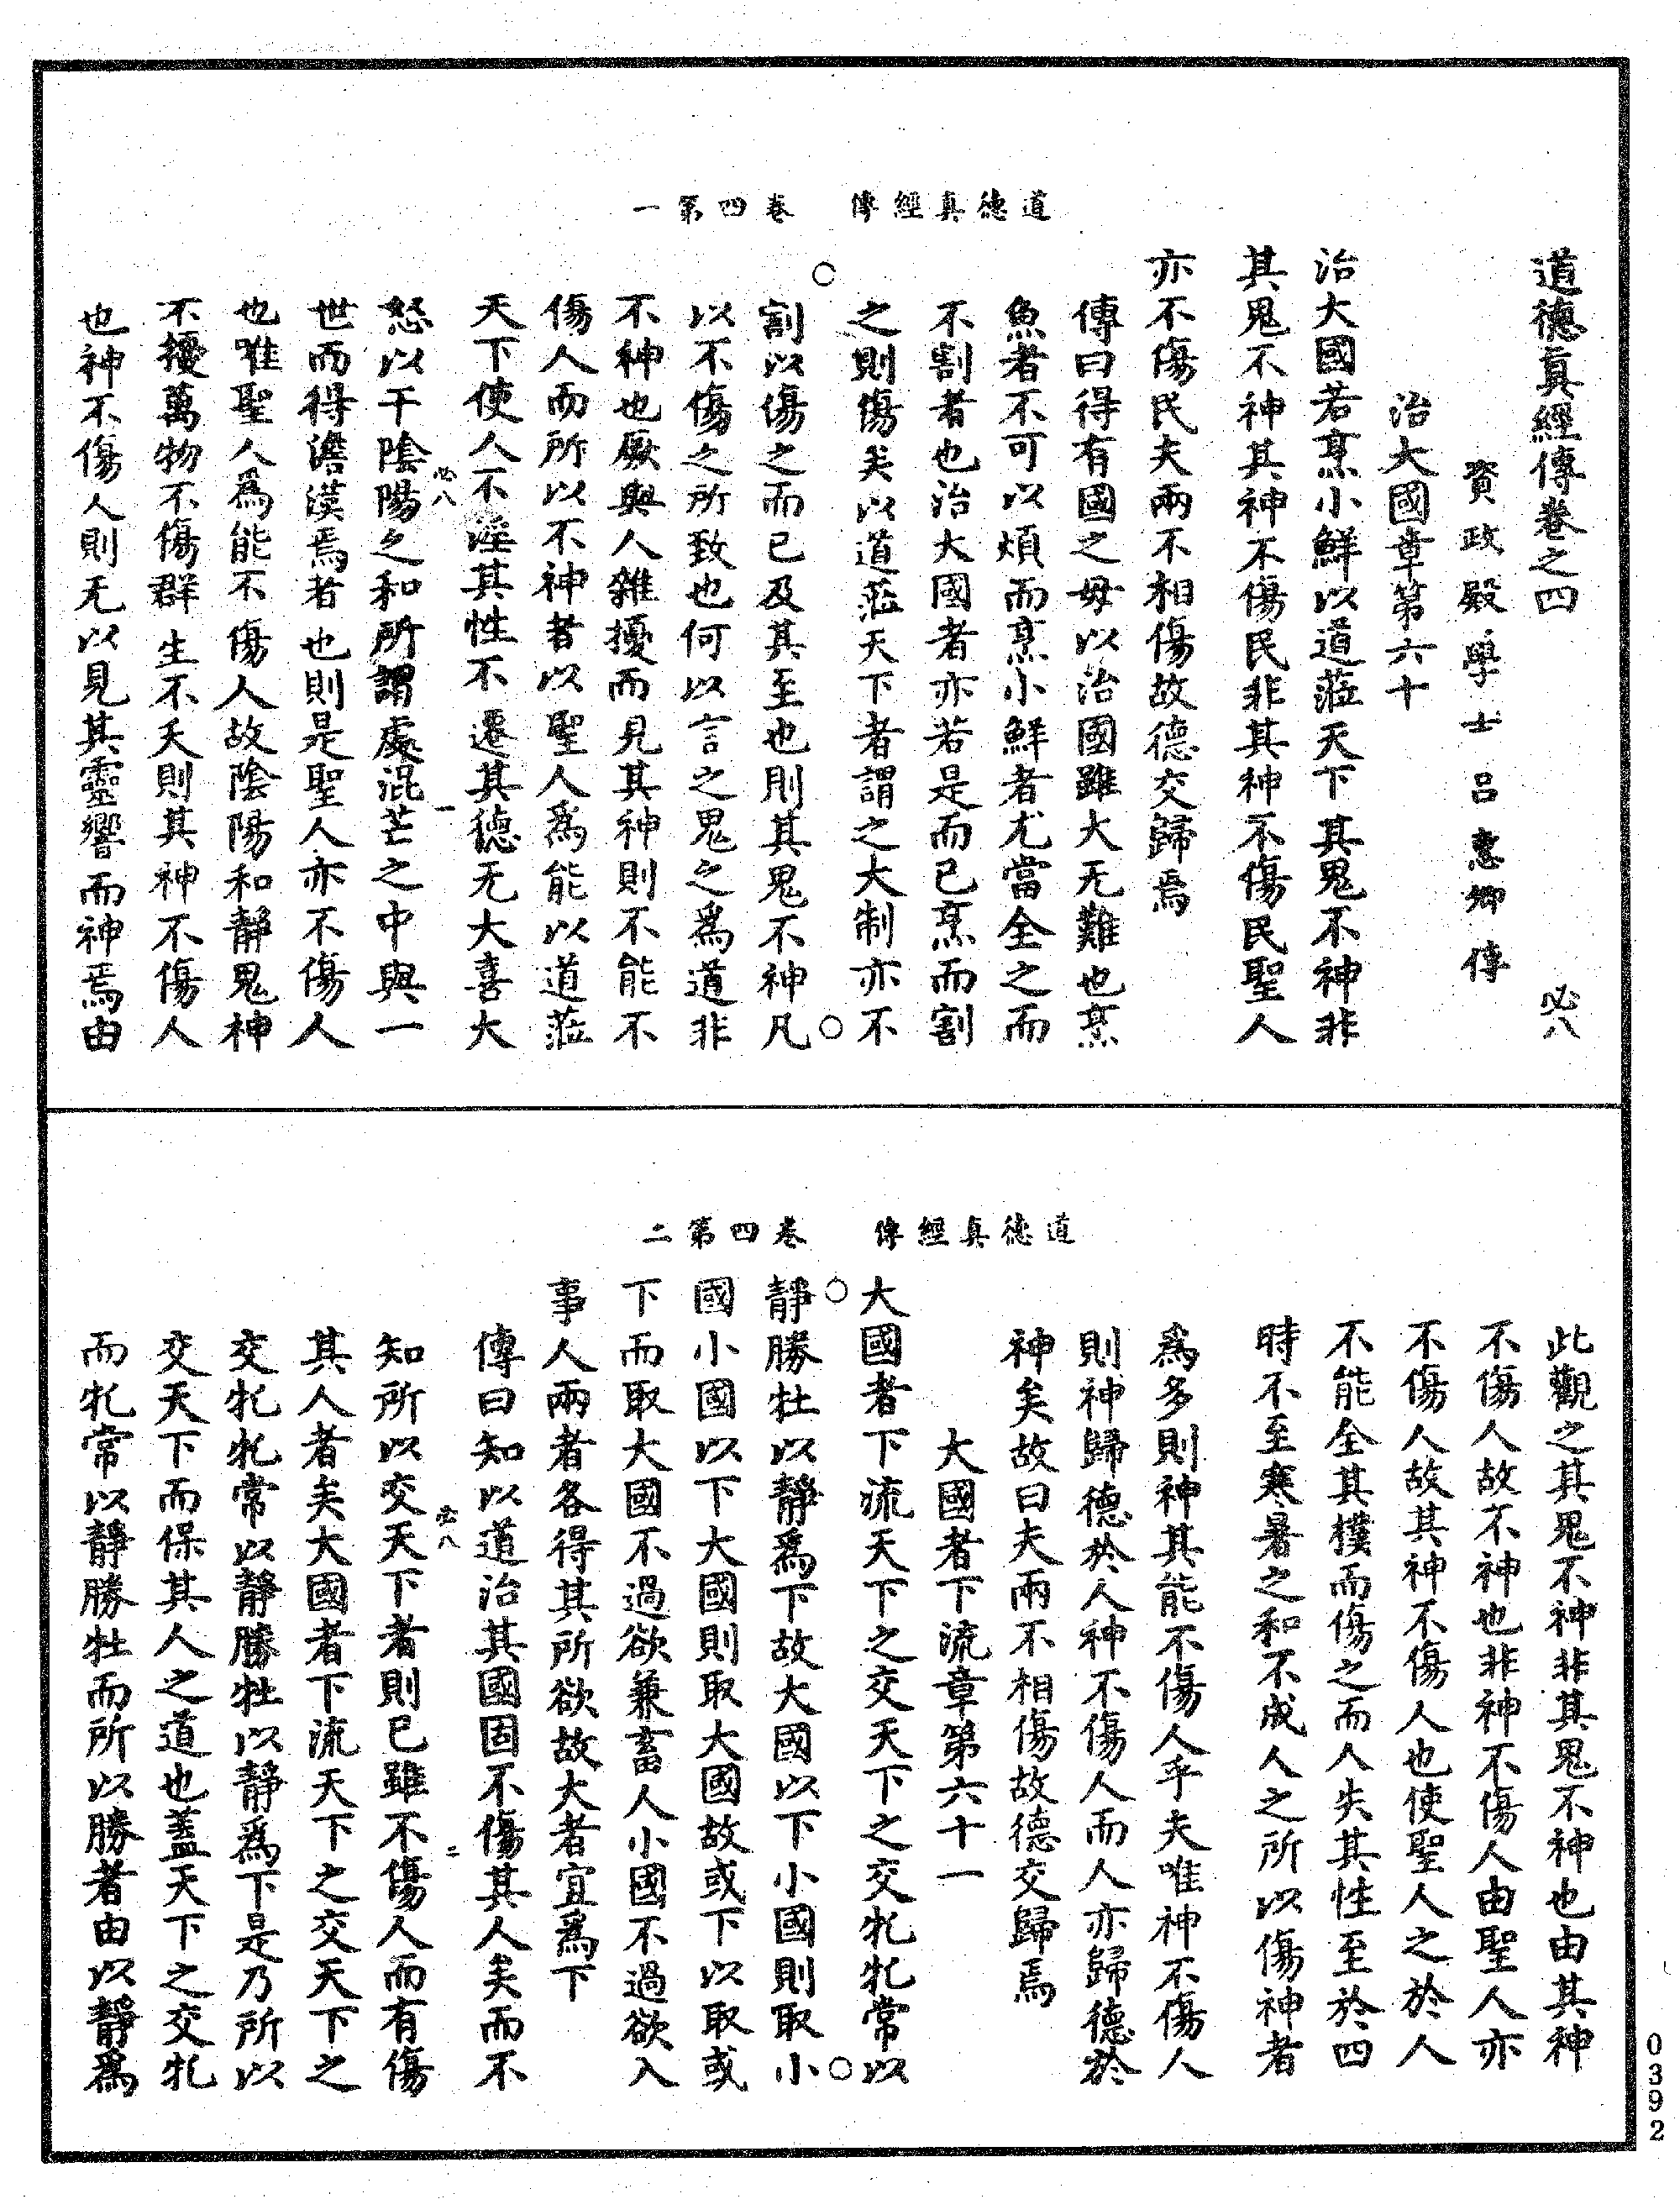 道德真經傳　卷四第一
道德真經傳卷之四　必八
資政殿學士呂惠卿傳
治大國章第六十
治大國若烹小鮮以道莅天下其鬼不神非
其鬼不神其神不傷民非其神不傷民聖人
亦不傷民夫兩不相傷故德交歸焉
傳曰得有國之母以治國雖大无難也烹
魚者不可以煩而烹小鮮者尤當全之而
不割者也治大國者亦若是而已烹而割
之則傷矣以道莅天下者謂之大制亦不
割以傷之而已及其至也則其鬼不神凡
以不傷之所致也何以言之鬼之爲道非
不神也厥與人雜擾而見其神則不能不
傷人而所以不神者以聖人爲能以道莅
天下使人不淫其性不遷其德无大喜大
必八　一
怒以干陰陽之和所謂處混芒之中與一
世而得澹漠焉者也則是聖人亦不傷人
也唯聖人爲能不傷人故陰陽和靜鬼神
不擾萬物不傷群生不夭則其神不傷人
也神不傷人則无以見其靈響而神焉由
道德真經傳　卷四第二
此觀之其鬼不神非其鬼不神也由其神
不傷人故不神也非神不傷人由聖人亦
不傷人故其神不傷人也使聖人之於人
不能全其樸而傷之而人失其性至於四
時不至寒暑之和不成人之所以傷神者
爲多則神其能不傷人乎夫唯神不傷人
則神歸德於人神不傷人而人亦歸德於
神矣故曰夫兩不相傷故德交歸焉
大國者下流章第六十一
大國者下流天下之交天下之交牝牝常以
靜勝牡以靜爲下故大國以下小國則取小
國小國以下大國則取大國故或下以取或
下而取大國不過欲兼畜人小國不過欲入
事人兩者各得其所欲故大者宜爲下
傳曰知以道治其國固不傷其人矣而不
必八　二
知所以交天下者則已雖不傷人而有傷
其人者矣大國者下流天下之交天下之
交牝牝常以靜勝牡以靜爲下是乃所以
交天下而保其人之道也蓋天下之交牝
而牝常以靜勝牡而所以勝者由以靜爲
0392